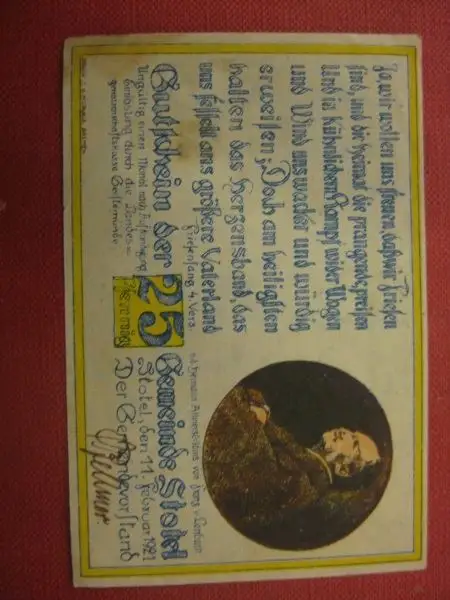 Ja wir wollen uns freuen, daß wir Friesen
sind, und die Heimat die prangende, preisen
Und in kühnlichem Kampf wider Wogen
und Wind uns wacker und würdig
erweisen, Doch am heiligsten
halten das Herzensband, das
uns fesselt ans größere Vaterland
Friesensang, 4. Vers.
Gutschein der 25 Gemeinde Stotel
Pfennig
Ungültig einen Monat nach Aufkündigung
Einlösung durch die Landes=
genossenschaftskasse Geestemünde
n. d. Hermann Allmers-Bildnis von Franz v. Lenbach
Stotel, den 11. Februar 1921
Der Gemeindevorstand